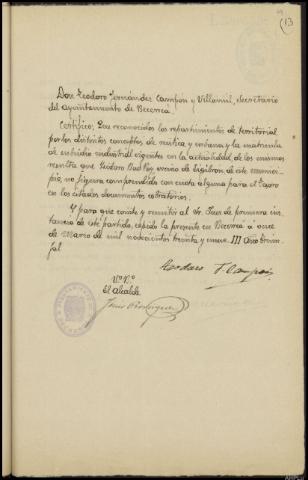 13
Don Teodoro Fernández Campón y Villamil, secretario
del ayuntamiento de Becerreá.
Certifico: Que reconocidos los repartimientos de territorial
por los distintos conceptos de rústica y urbana y la matrícula
de subsidio industrial vigentes en la actualidad, de los mismos
resulta que Isidoro vecino de de este munici-
pio, no figura comprendido con cuota alguna para el Tesoro
en los citados documentos cobratorios.
Y para que conste y remitir al Sr. Juez de primera ins-
tancia de este partido, expido la presente en Becerreá a once
de Marzo de mil novecientos treinta y nueve. III Año Triun-
fal.
Teodoro F. Campón
Vº Bº
El Alcalde